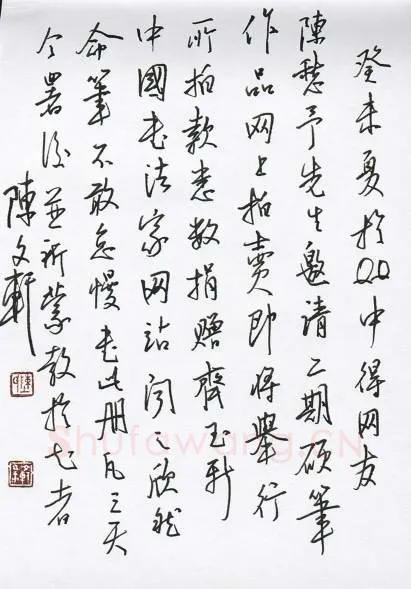 癸未夏於QQ中得网友
陳慧予先生邀请二期硕筆
作品网上拍賣即将舉行
所拍款悉数捐赠齊玉新
中國书法家网站闻之欣然
命筆不敢怠慢书此册凡三天
今署後並祈蒙教於七者
陳文軒
Shufawang.CN